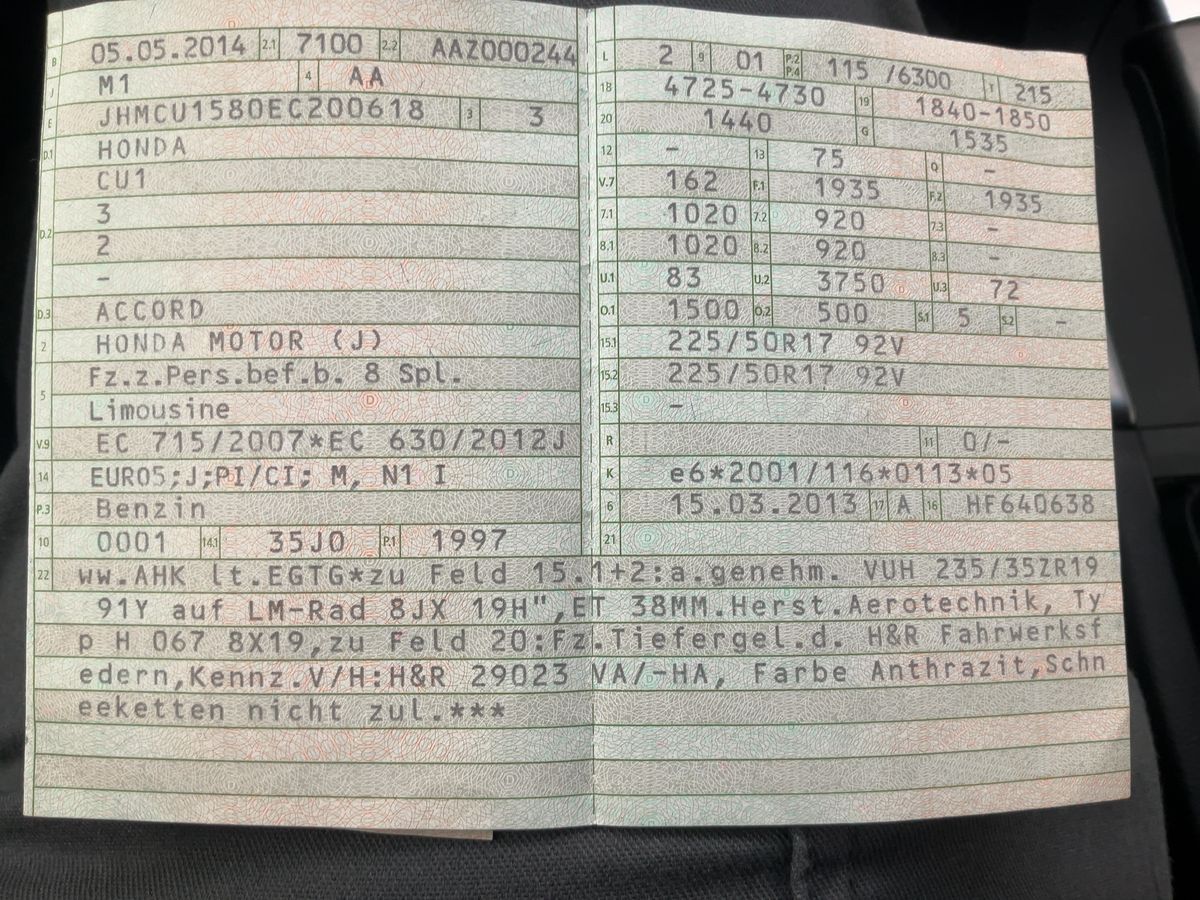 B 05.05.2014 2.1 7100 2.2 AAZ000244
J M1 4 AA
E JHMCU1580EC200618 3 3
D.1 HONDA
CU1
3
D.2 2
-
D.3 ACCORD
2 HONDA MOTOR (J)
Fz.z.Pers.bef.b. 8 Spl.
5 Limousine
V.9 EC 715/2007*EC 630/2012J
14 EURO5;J;PI/CI; M, N1 I
P.3 Benzin
10 0001 14.1 35J0 P.1 1997
L 2 9 01 P.2 P.4 115 /6300 T 215
18 4725-4730 19 1840-1850
20 1440 G 1535
12 - 13 75 Q -
V.7 162 F.1 1935 F.2 1935
7.1 1020 7.2 920 7.3 -
8.1 1020 8.2 920 8.3 -
U.1 83 U.2 3750 U.3 72
O.1 1500 O.2 500 S.1 5 S.2 -
15.1 225/50R17 92V
15.2 225/50R17 92V
15.3 -
R 11 0/-
K e6*2001/116*0113*05
6 15.03.2013 17 A 16 HF640638
21
22 ww.AHK lt.EGTG*zu Feld 15.1+2:a.genehm. VUH 235/35ZR19
91Y auf LM-Rad 8JX 19H",ET 38MM.Herst.Aerotechnik, Ty
p H 067 8X19,zu Feld 20:Fz.Tiefergel.d. H&R Fahrwerksf
edern,Kennz.V/H:H&R 29023 VA/-HA, Farbe Anthrazit,Schn
eeketten nicht zul.***